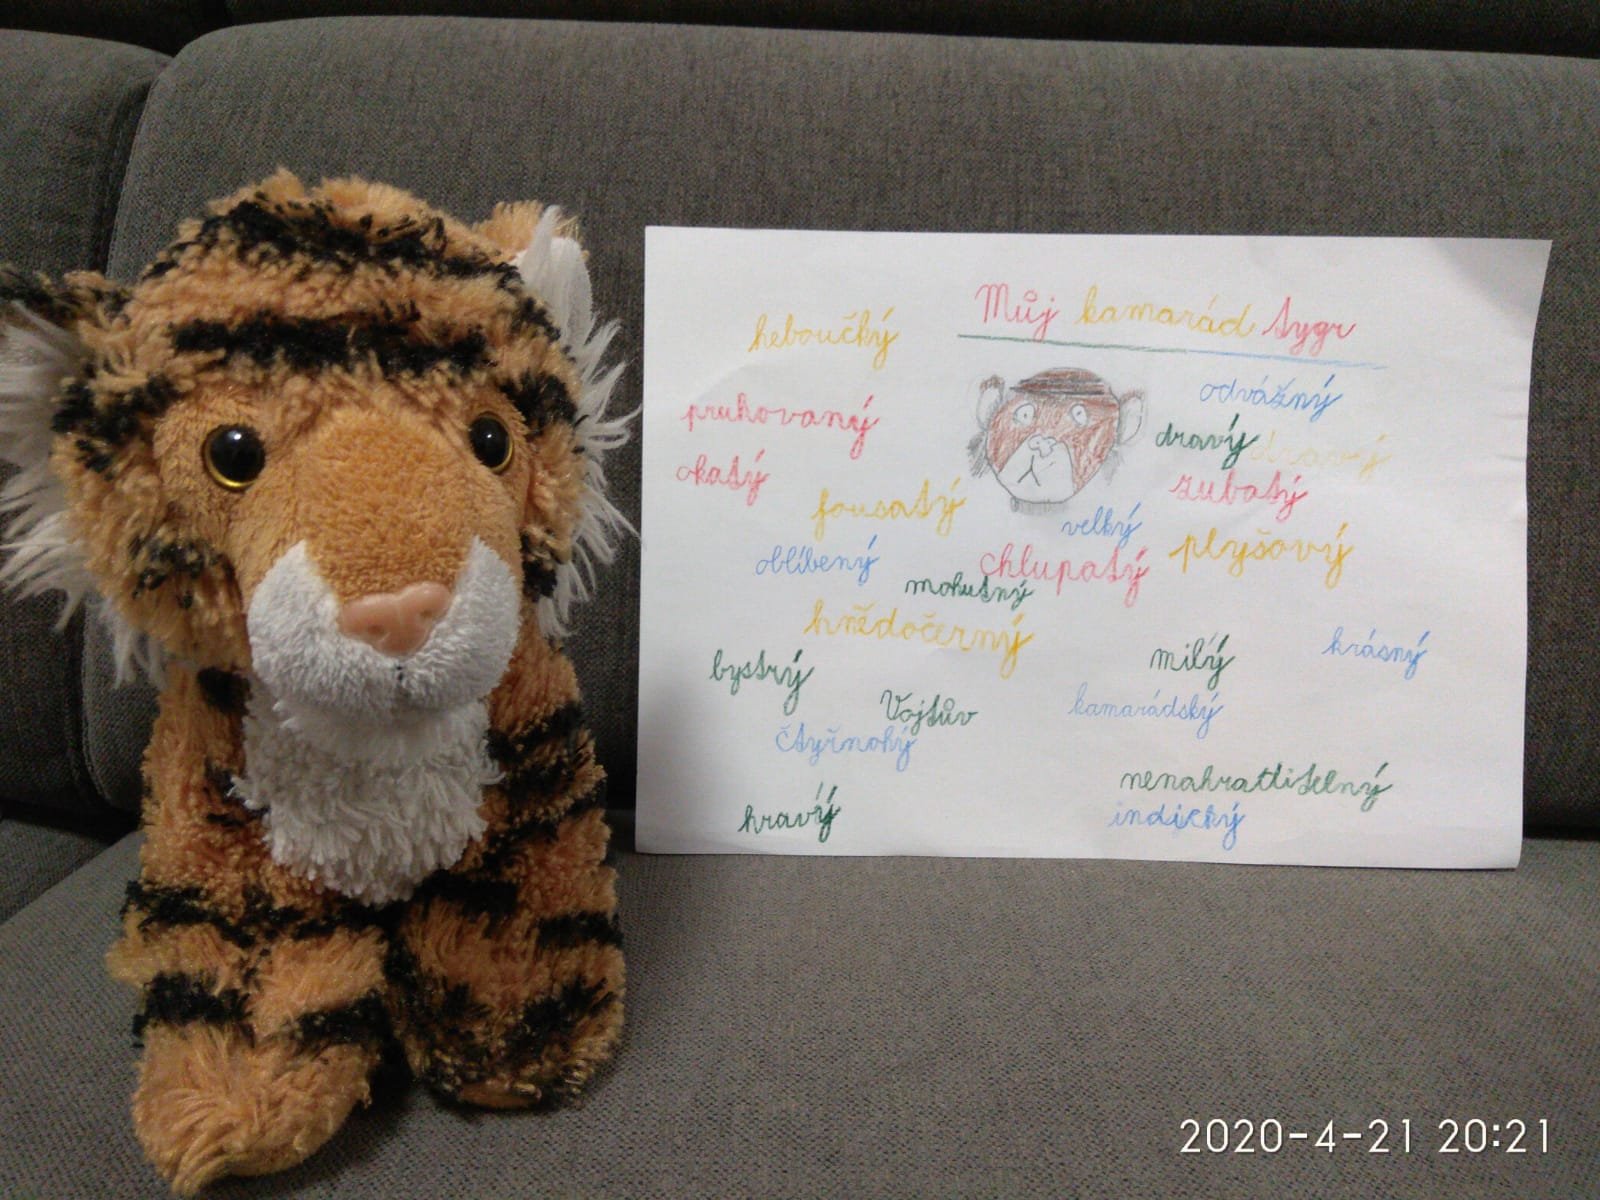 Můj kamarád tygr
heboučký
odvážný
pruhovaný
dravý dravý
okatý
zubatý
fousatý
velký
plyšový
oblíbený
chlupatý
mohutný
hnědočerný
milý
krásný
bystrý
Vojtův
kamarádský
čtyřnohý
nenahratlitelný
hravý
indický
2020-4-21 20:21